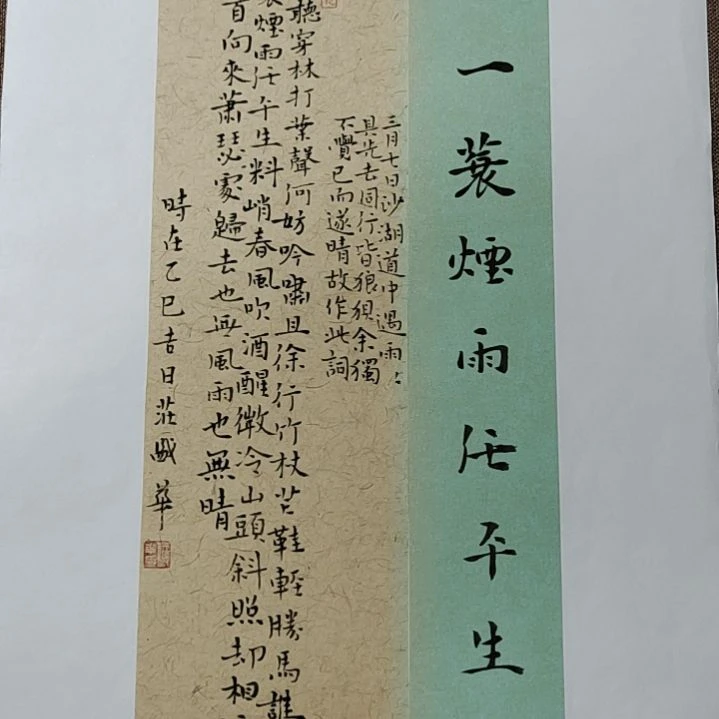 一蓑煙雨任平生
三月七日沙湖道中遇雨〻
具先去同行皆狼狽余獨
不覺已而遂晴故作此詞
聽穿林打葉聲何妨吟嘯且徐行竹杖芒鞋輕勝馬誰
蓑煙雨任平生料峭春風吹酒醒微冷山頭斜照却相
首向來蕭瑟處歸去也無風雨也無晴
時在乙巳吉日莊
華